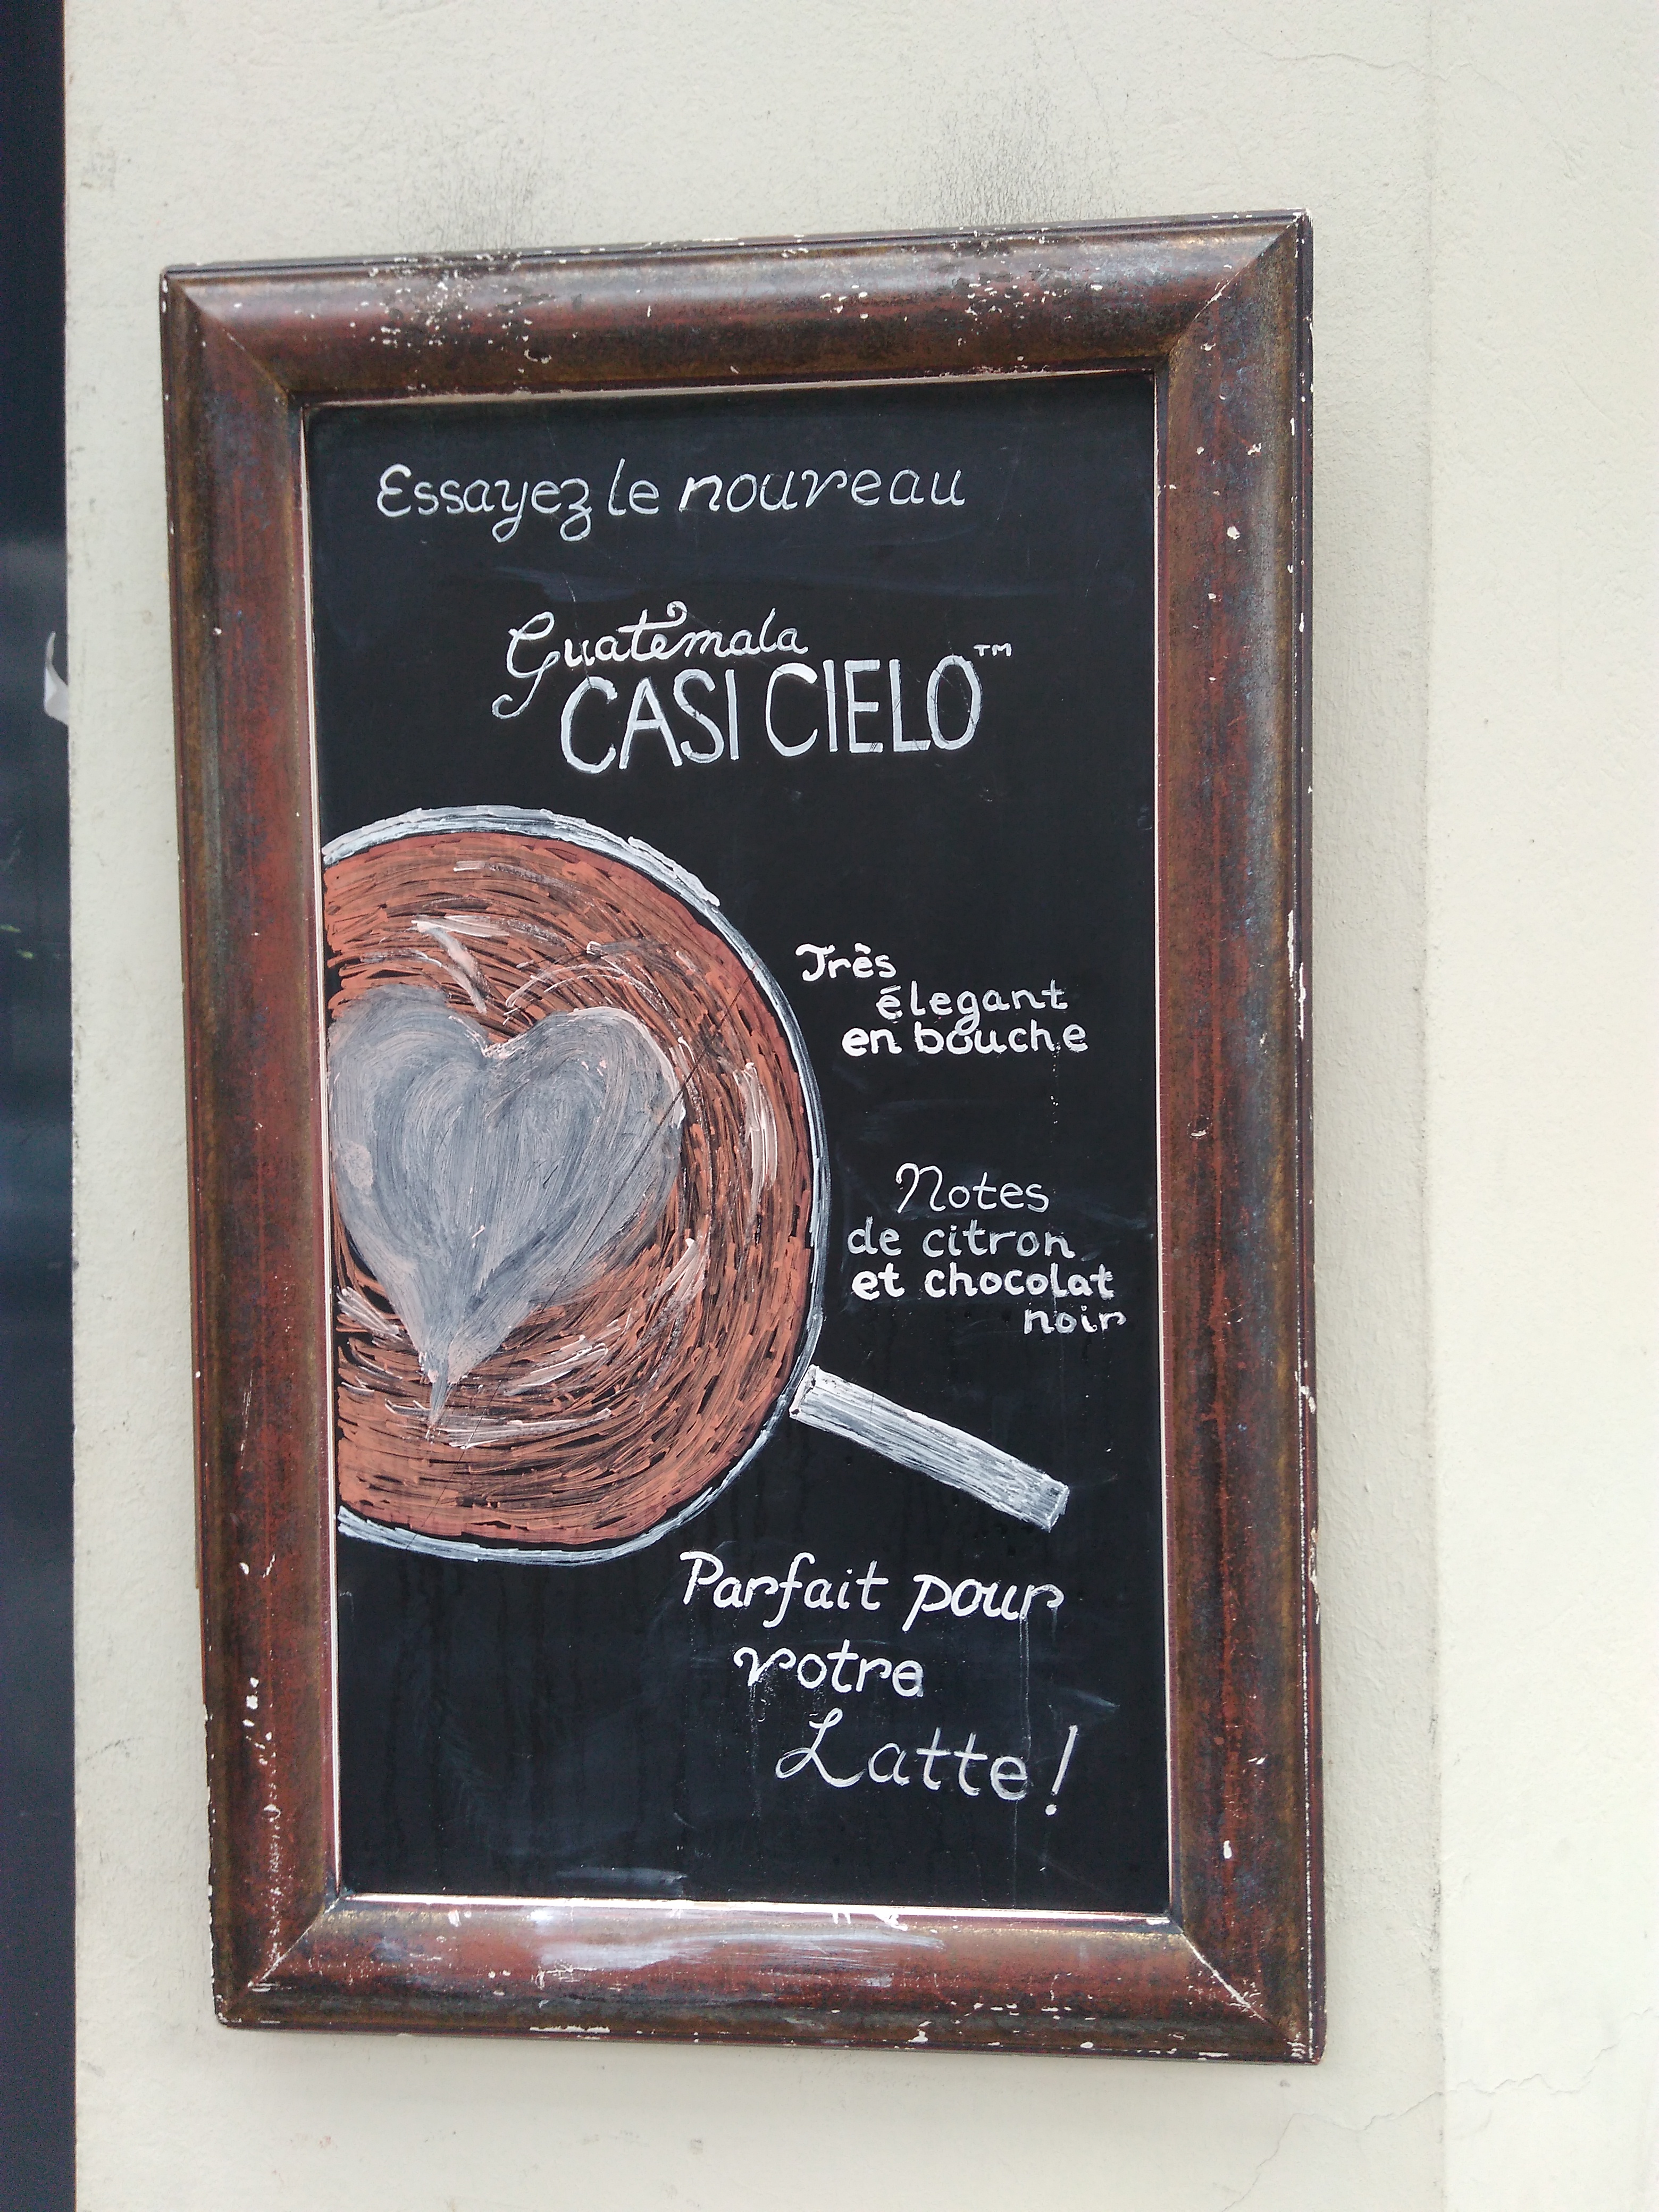 Essayez le nouveau
Guatemala
CASI CIELO™
Très
élegant
en bouche
Notes
de citron
et chocolat
noir
Parfait pour
votre
Latte!